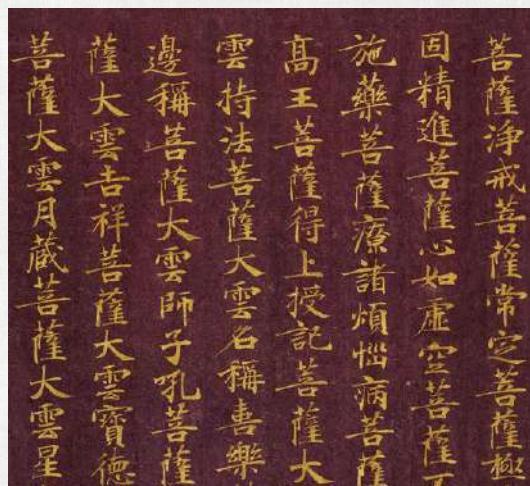 菩薩淨戒菩薩常定菩薩極
固精進菩薩心如虛空菩薩
施藥菩薩療諸煩惱病菩薩
高王菩薩得上授記菩薩大
雲持法菩薩大雲名稱喜樂
邊稱菩薩大雲師子吼菩薩
薩大雲吉祥菩薩大雲寶德
菩薩大雲月藏菩薩大雲星